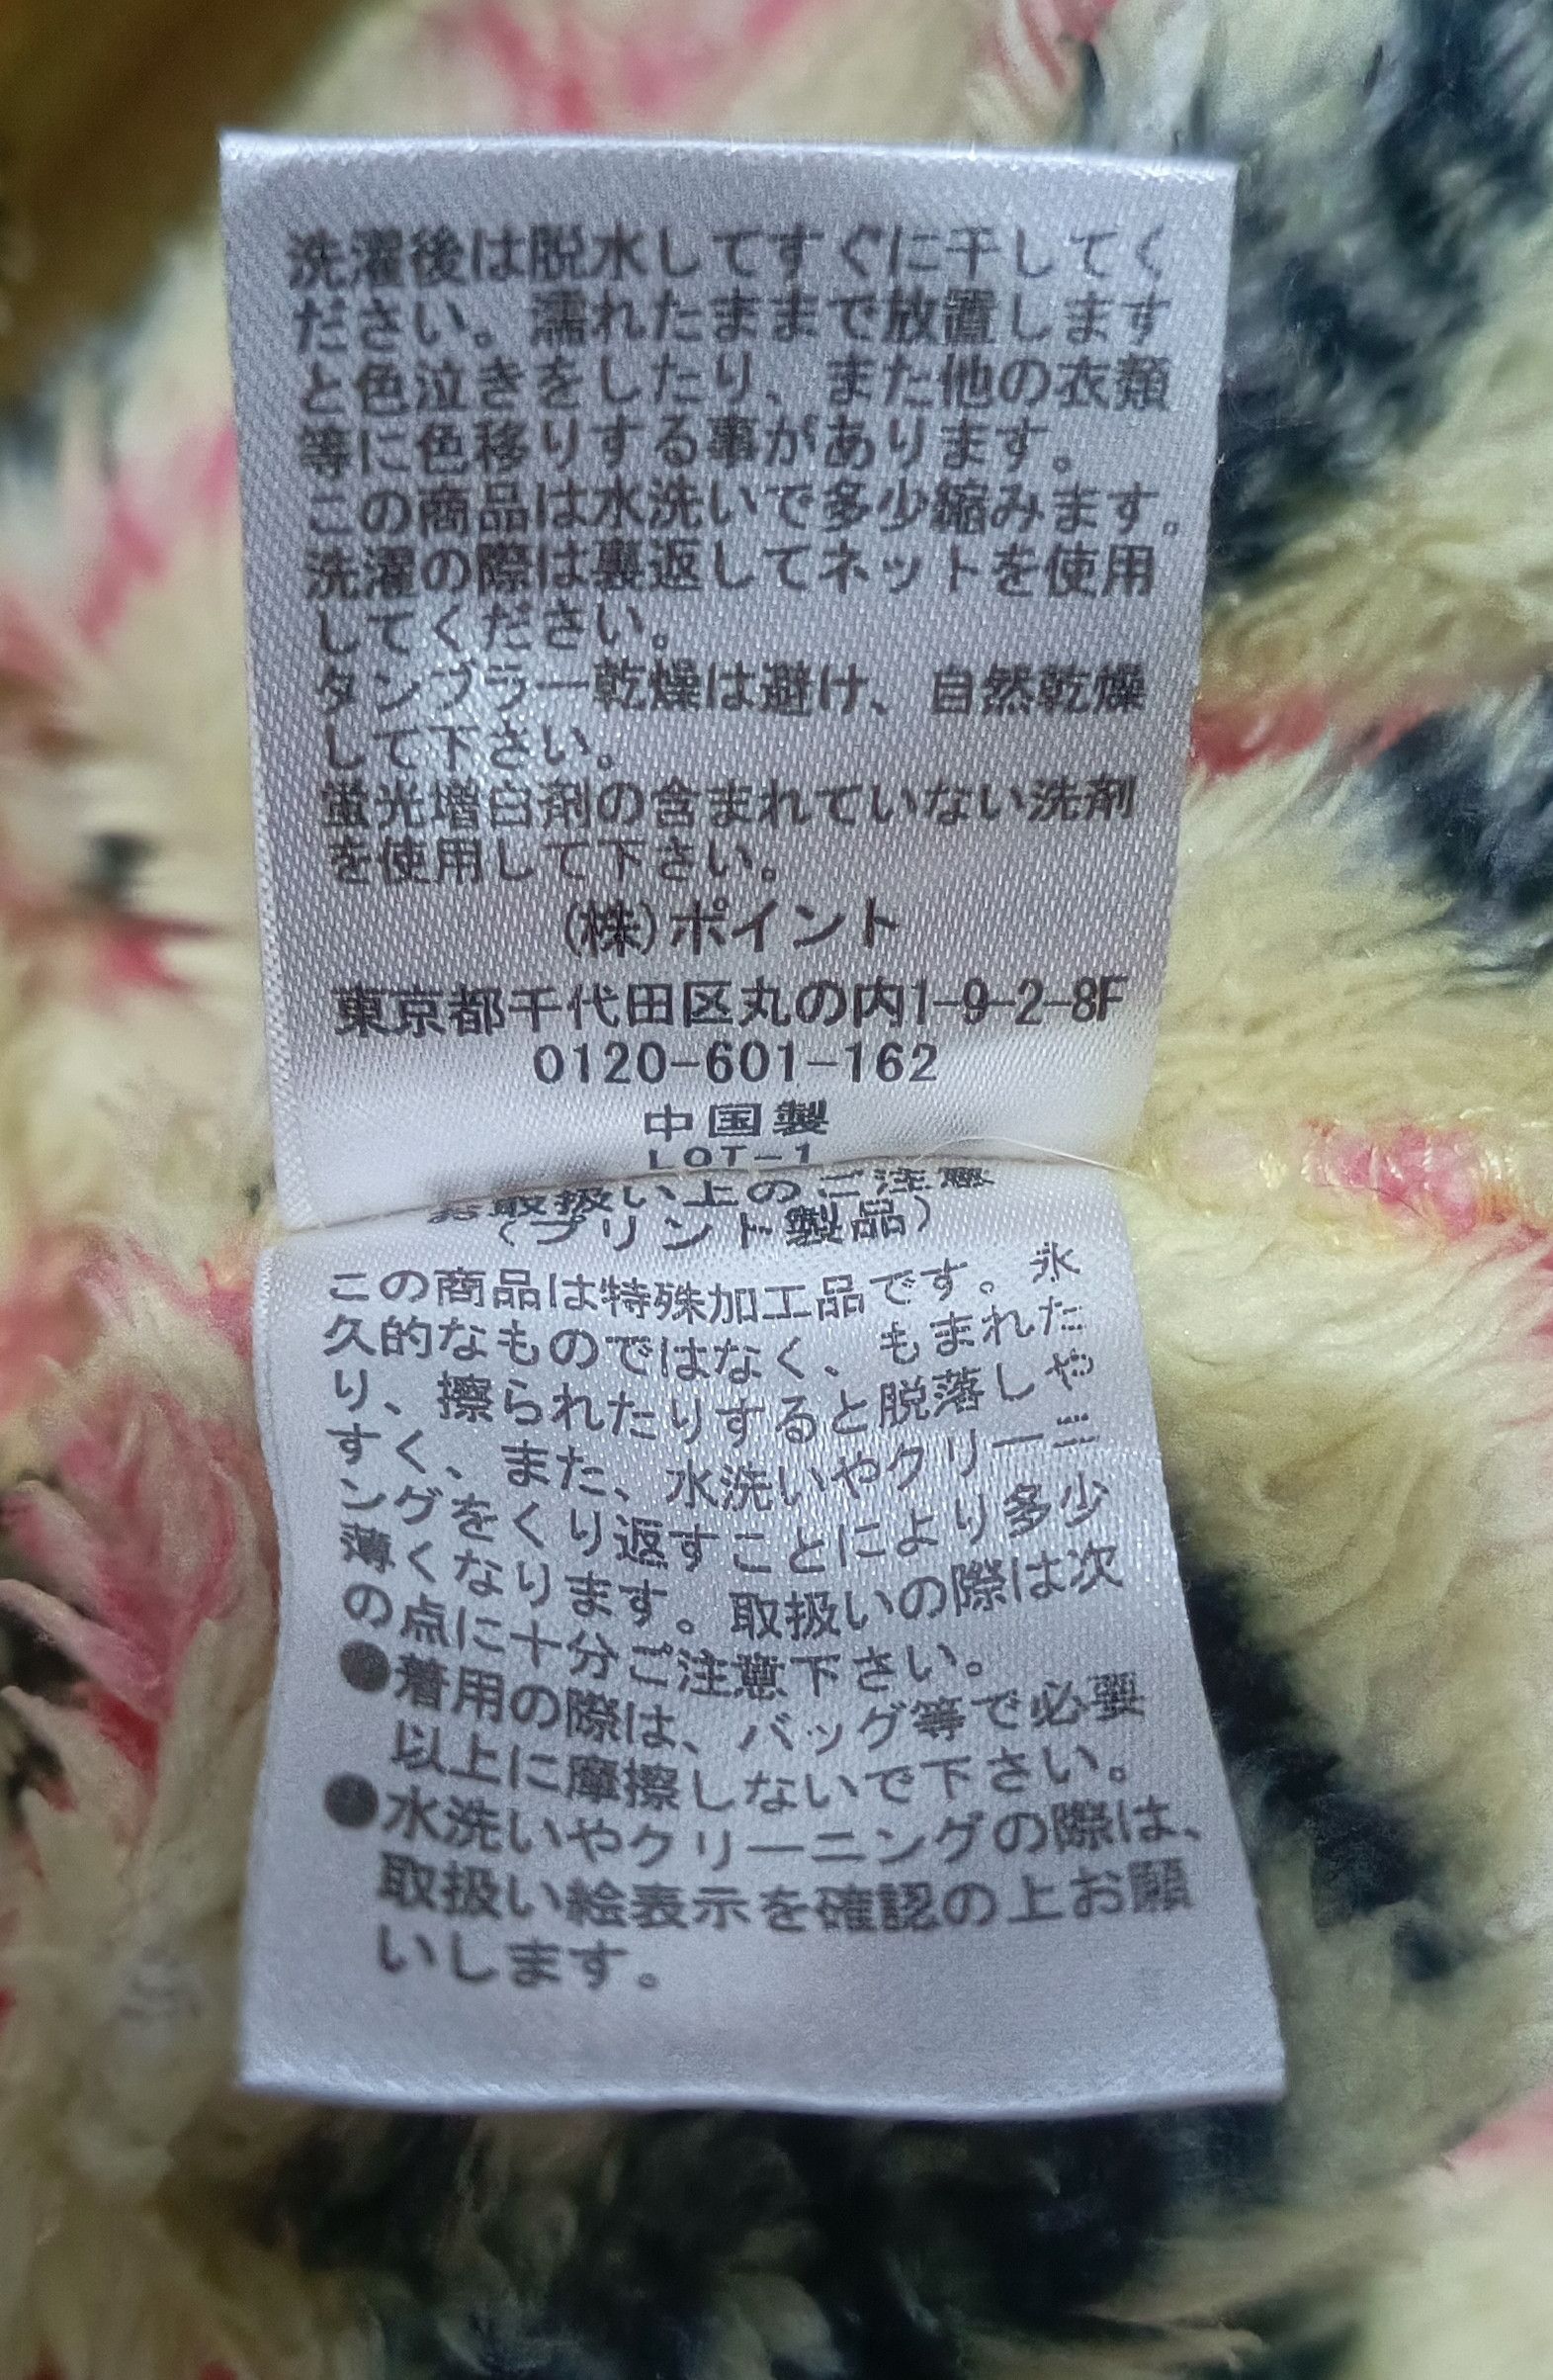 洗濯後は脱水してすぐに干してく
ださい。濡れたままで放置します
と色泣きをしたり、また他の衣類
等に色移りする事があります。
この商品は水洗いで多少縮みます。
洗濯の際は裏返してネットを使用
してください。
タンブラー乾燥は避け、自然乾燥
して下さい。
蛍光増白剤の含まれていない洗剤
を使用して下さい。
(株)ポイント
東京都千代田区丸の内1-9-2-8F
0120-601-162
中国製
LOT-1
お取扱い上のご注意
(プリント製品)
この商品は特殊加工品です。永
久的なものではなく、もまれた
り、擦られたりすると脱落しや
すく、また、水洗いやクリーニ
ングをくり返すことにより多少
薄くなります。取扱いの際は次
の点に十分ご注意下さい。
●着用の際は、バッグ等で必要
以上に摩擦しないで下さい。
●水洗いやクリーニングの際は、
取扱い絵表示を確認の上お願
いします。